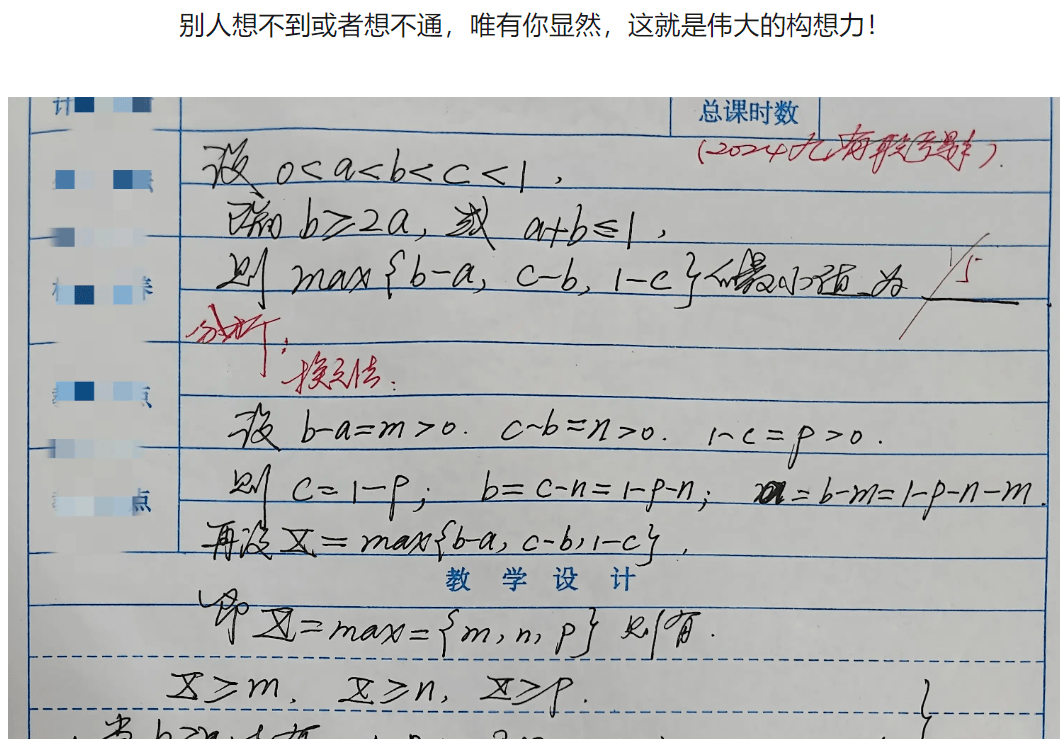 别人想不到或者想不通，唯有你显然，这就是伟大的构想力！
计
总课时数
(2024九省联考题).
设 0<a<b<c<1，
b≥2a，或 a+b≤1，
则 max{b-a, c-b, 1-c}的最小值为
1/5
分析：
换元法：
点
设 b-a=m>0. c-b=n>0. 1-c=p>0.
则 c=1-p; b=c-n=1-p-n; a=b-m=1-p-n-m.
点
再设 X=max{b-a, c-b, 1-c}，
教 学 设 计
即 X=max={m, n, p} 则有.
X≥m, X≥n, X≥p.